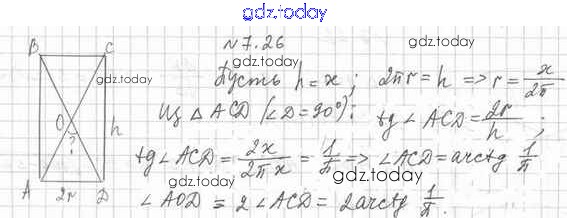 gdz.today
№7.26
gdz.today
B C gdz.today
Пусть h = x; 2πr = h => r = x/2π
Из △ ACD (∠D = 90°): tg∠ACD = 2r/h;
O ? h
tg∠ACD = 2x/2πx = 1/π => ∠ACD = arctg 1/π
gdz.today gdz.today
A 2r D
∠AOD = 2∠ACD = 2arctg 1/π.